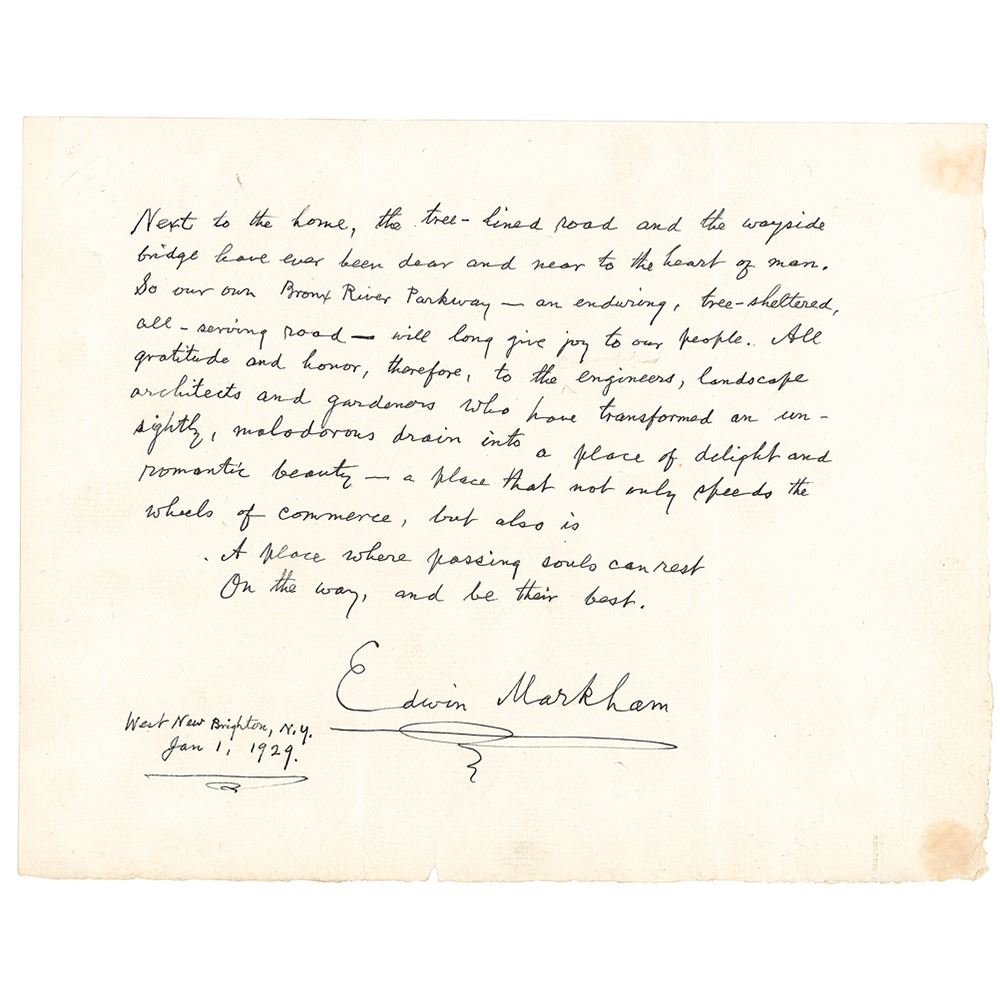 Next to the home, the tree-lined road and the wayside
bridge have ever been dear and near to the heart of man.
So our own Bronx River Parkway — an enduring, tree-sheltered,
all-serving road — will long give joy to our people. All
gratitude and honor, therefore, to the engineers, landscape
architects and gardeners who have transformed an un-
sightly, malodorous drain into a place of delight and
romantic beauty — a place that not only speeds the
wheels of commerce, but also is
A place where passing souls can rest
On the way, and be their best.
Edwin Markham
West New Brighton, N.Y.
Jan 1, 1929.